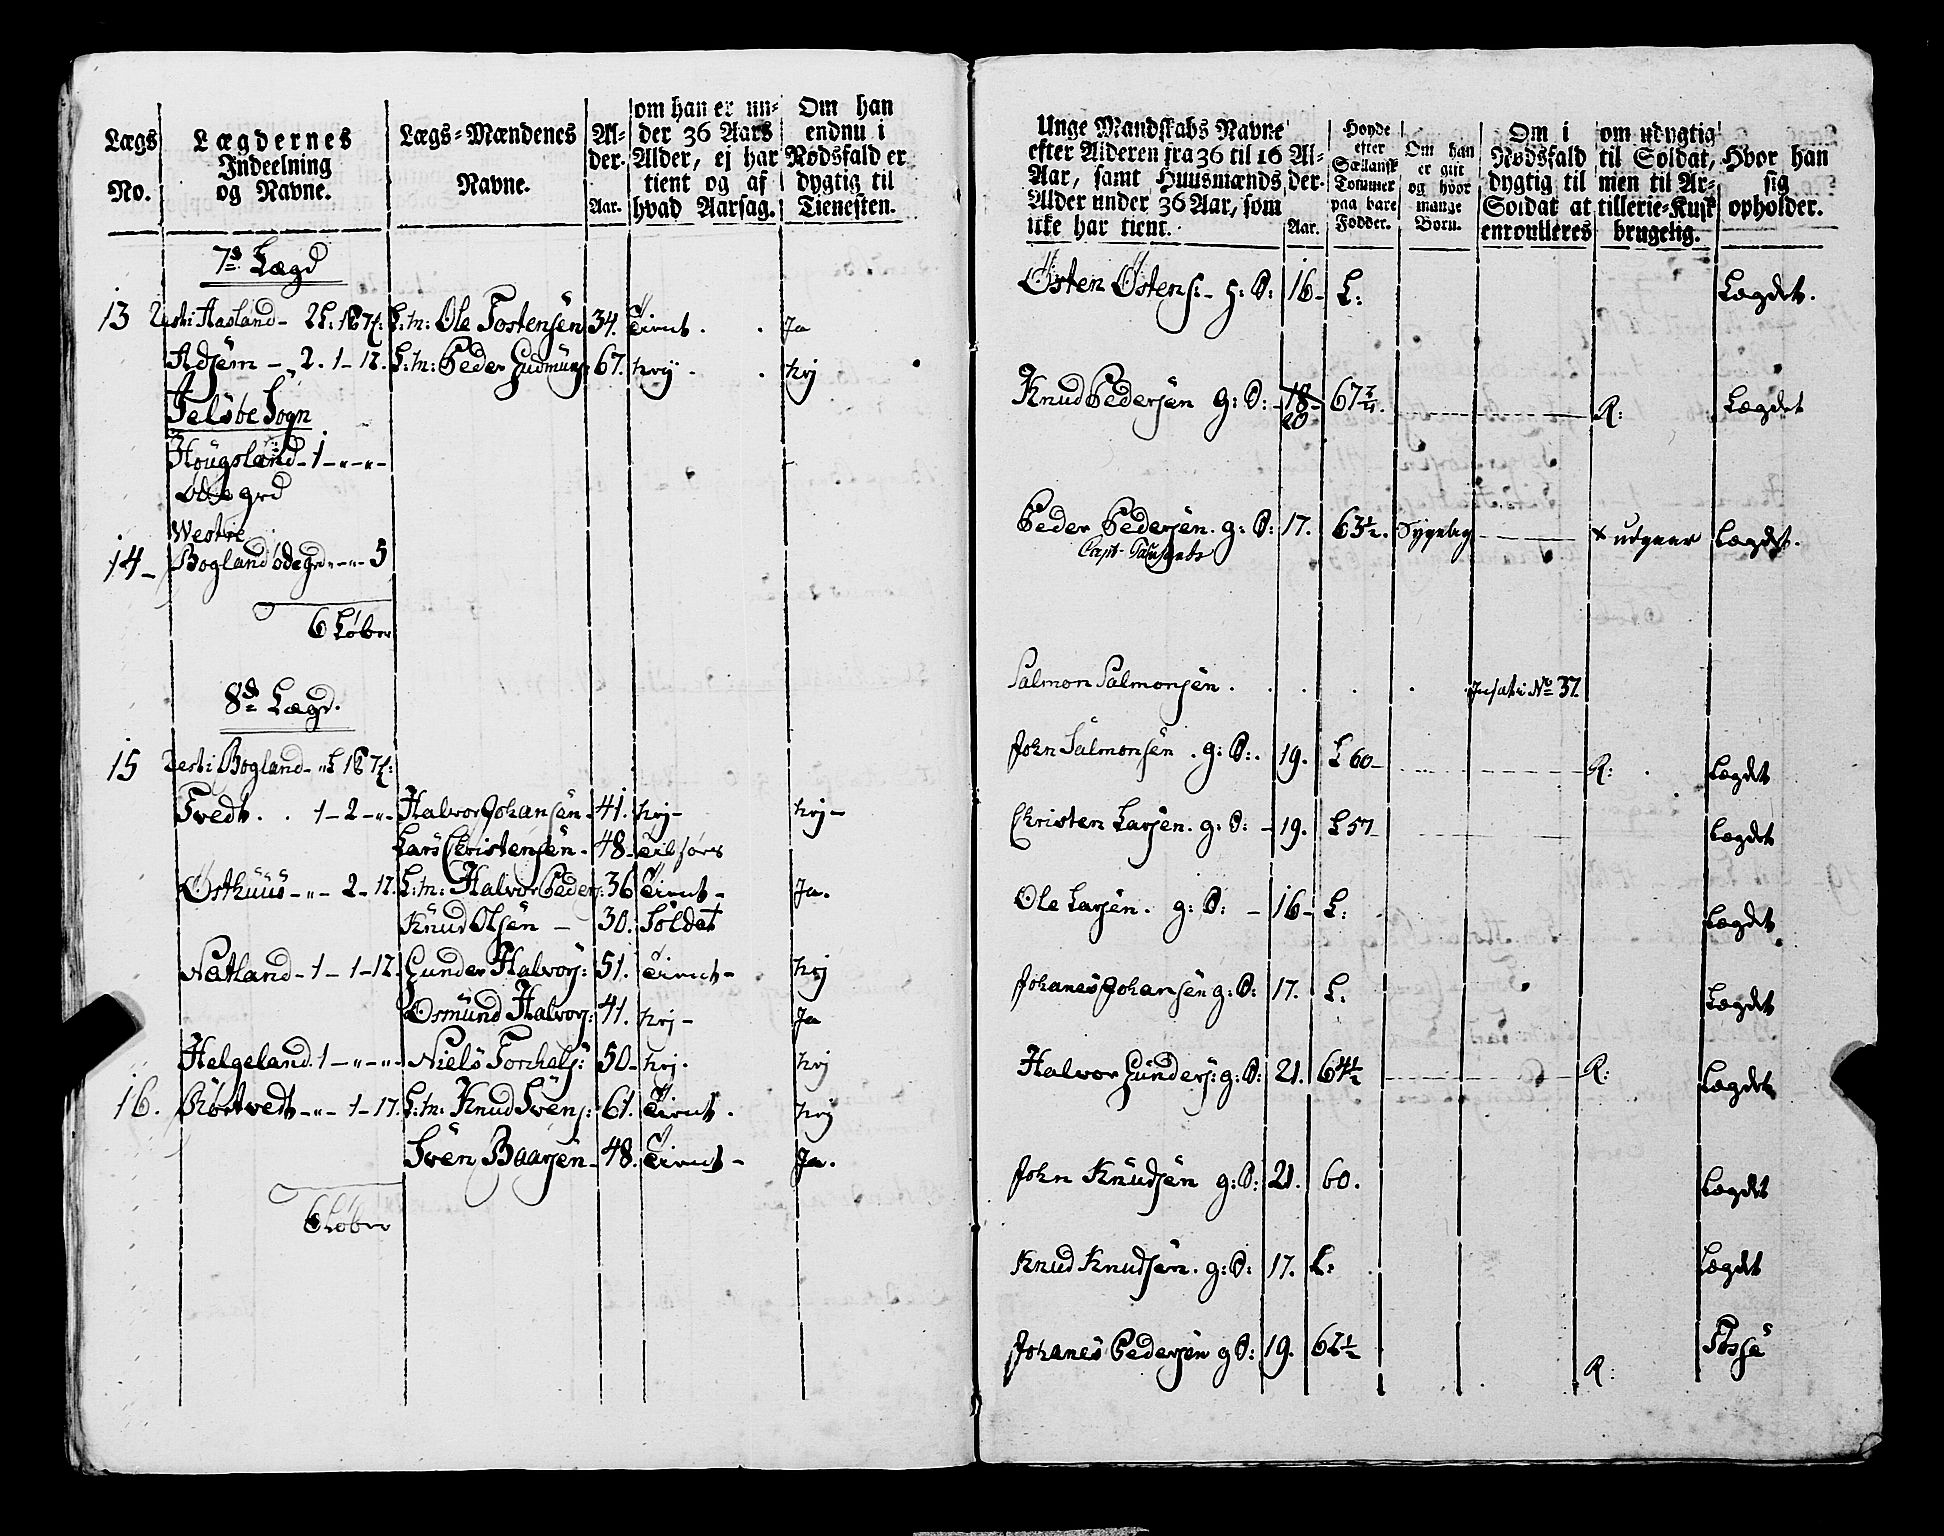 Lægs No.
Lægdernes Indeelning og Navne.
Lægs-Mændenes Navne.
Al-der. Aar.
om han er un-der 36 Aars Alder, ej har tient og af hvad Aarsag.
Om han endnu i Nødsfald er dygtig til Tienesten.
7de Lægd
13 Rest i Hasland - 2 L: L:m: Ole Tostensen 34. Tient . . Ja
Adsem - 2. 1 - 12. L:m: Peder Gudmuns 67. Nej . . Nej
Sogn
Høugsland - 1 - " - " -
Øde grd
Westre
14 - Bogland øde grd " - " - 5
6 Løber
8de Lægd.
15 Rest i Bogland - "
Tvedt . . 1 - 2 - " - Halvor Johansen - 41. Nej - Nej -
Lars Christensen - 48 -
Østhuus - " - 2 - 12. L:m: Halvor Peders: 36 Tient - Ja.
Knud Olsen - 30. Soldat
Natland - 1 - 1 - 12. Gunder Halvors: 51. Tient - Nej
Osmund Halvors: 41. Nej - Ja
Helgeland. 1 - " - " - Niels Torchels: 50 - Nej. Nej
16. Røstvedt - " - 1 - 17. L:m: Knud Svens: 61. Tient . Nej
Sven Baarsen - 48. Tient - Ja.
6 Løber
Unge Mandskabs Navne efter Alderen fra 36 til 16 Aar, samt Huusmænds Alder under 36 Aar, som icke har tient.
Al-der. Aar.
Høyde efter Siællansk Tommer paa bare Fødder.
Om han er gift og hvor mange Børn.
Om i Nødsfald dygtig til Soldat at enroulleres
om udygtig til Soldat, men til Ar-tillerie-Kusk brugelig.
Hvor han sig opholder.
Østen Østens: - H: S: 16 - L: Lægdet.
Knud Pedersen g: S: - 18 - 20 67 R: Lægdet
Peder Pedersen. g: S: 17. 63½. Sygelig + udgaar Lægdet.
Capt.
Salmon Salmonsen . . . . . Insat i No 37.
John Salmonsen . g: S: . 19. L 60 - R: . Lægdet
Christen Larsen. g: S: - 19. L 57 Lægdet
Ole Larsen. g: S: - 16 - L: Lægdet
Johanes Johansen g: S: 17. L: Lægdet
Halvor Gunders: g: S: 21. 64½ R: Lægdet
John Knudsen g: S: 21. 60. Lægdet
Knud Knudsen. g: S: 17. L: Lægdet
Johanes Pedersen g S: 19. 62½ R: Fosse